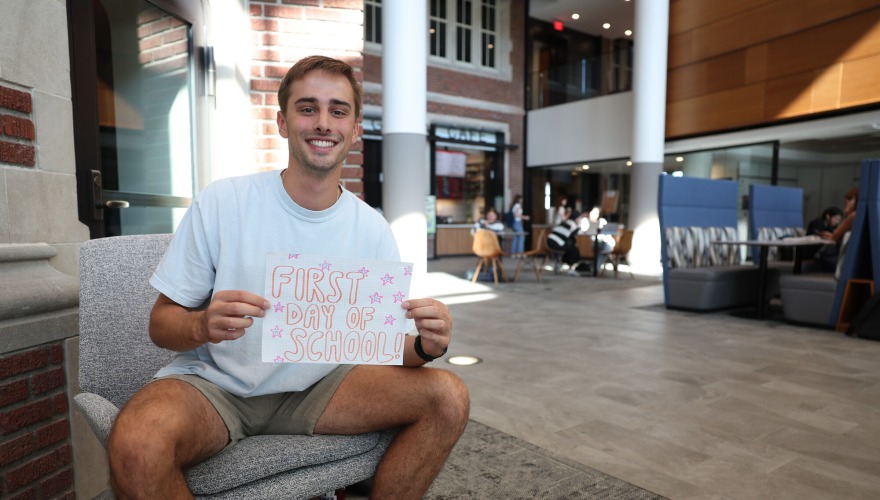 FIRST
DAY OF
SCHOOL!